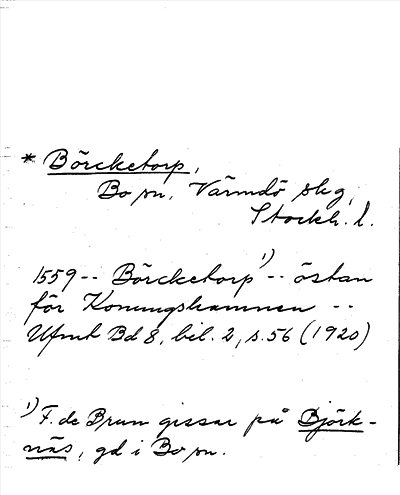 * Börcketorp,
Bo sn, Värmdö skg,
Stockh. l.
1559 -- Börcketorp 1) -- östan
för Konungshamnen --
Ufmt Bd 8, bil. 2, s. 56 (1920)
1) F. de Brun gissar på Björk-
näs, gd i Bo sn.